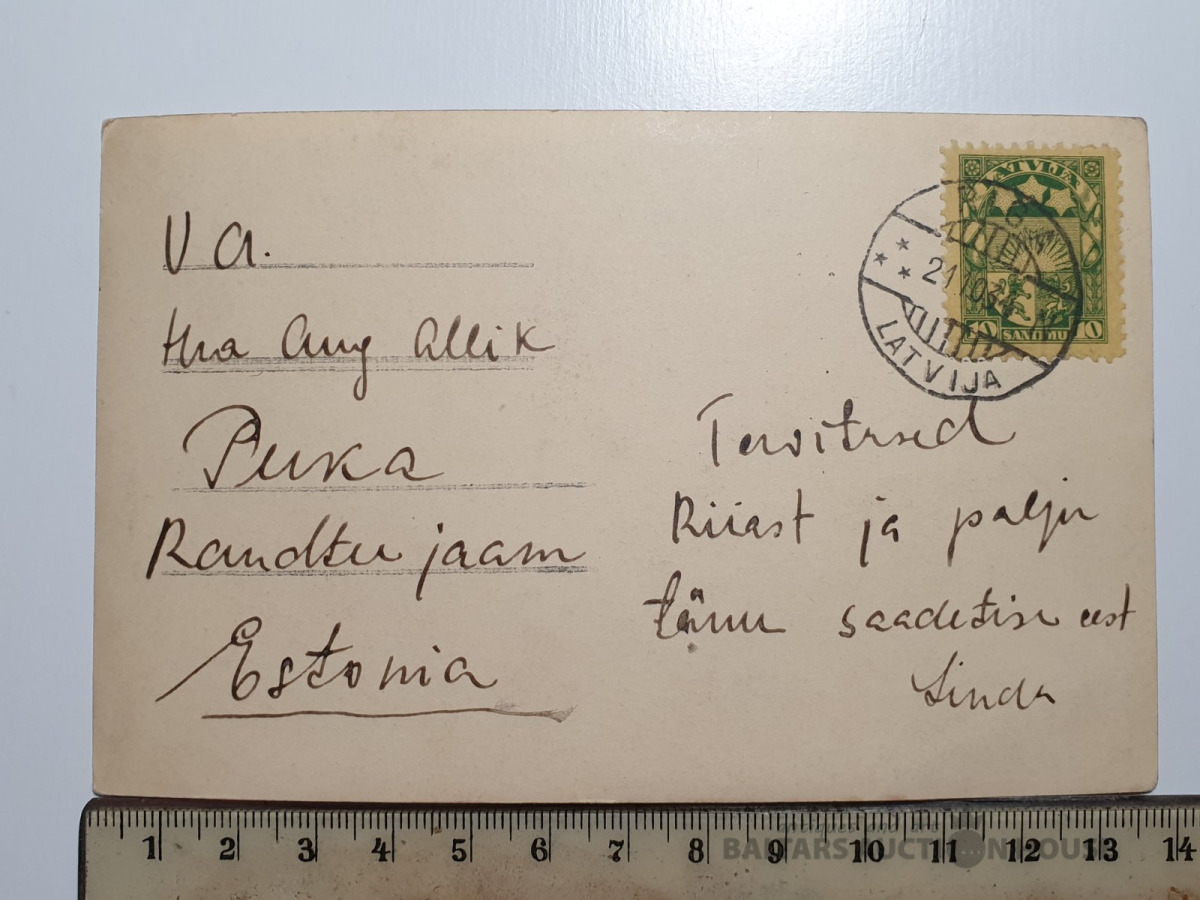 V A.
Hra Aug Allik
Puka
Randtu jaam
Estonia
Tervitused
Riiast ja palju
tänu saadetise eest
Linda
LATVIJA
10 SANTIMU 10
LATVIJA
1 2 3 4 5 6 7 8 9 10 11 12 13 14